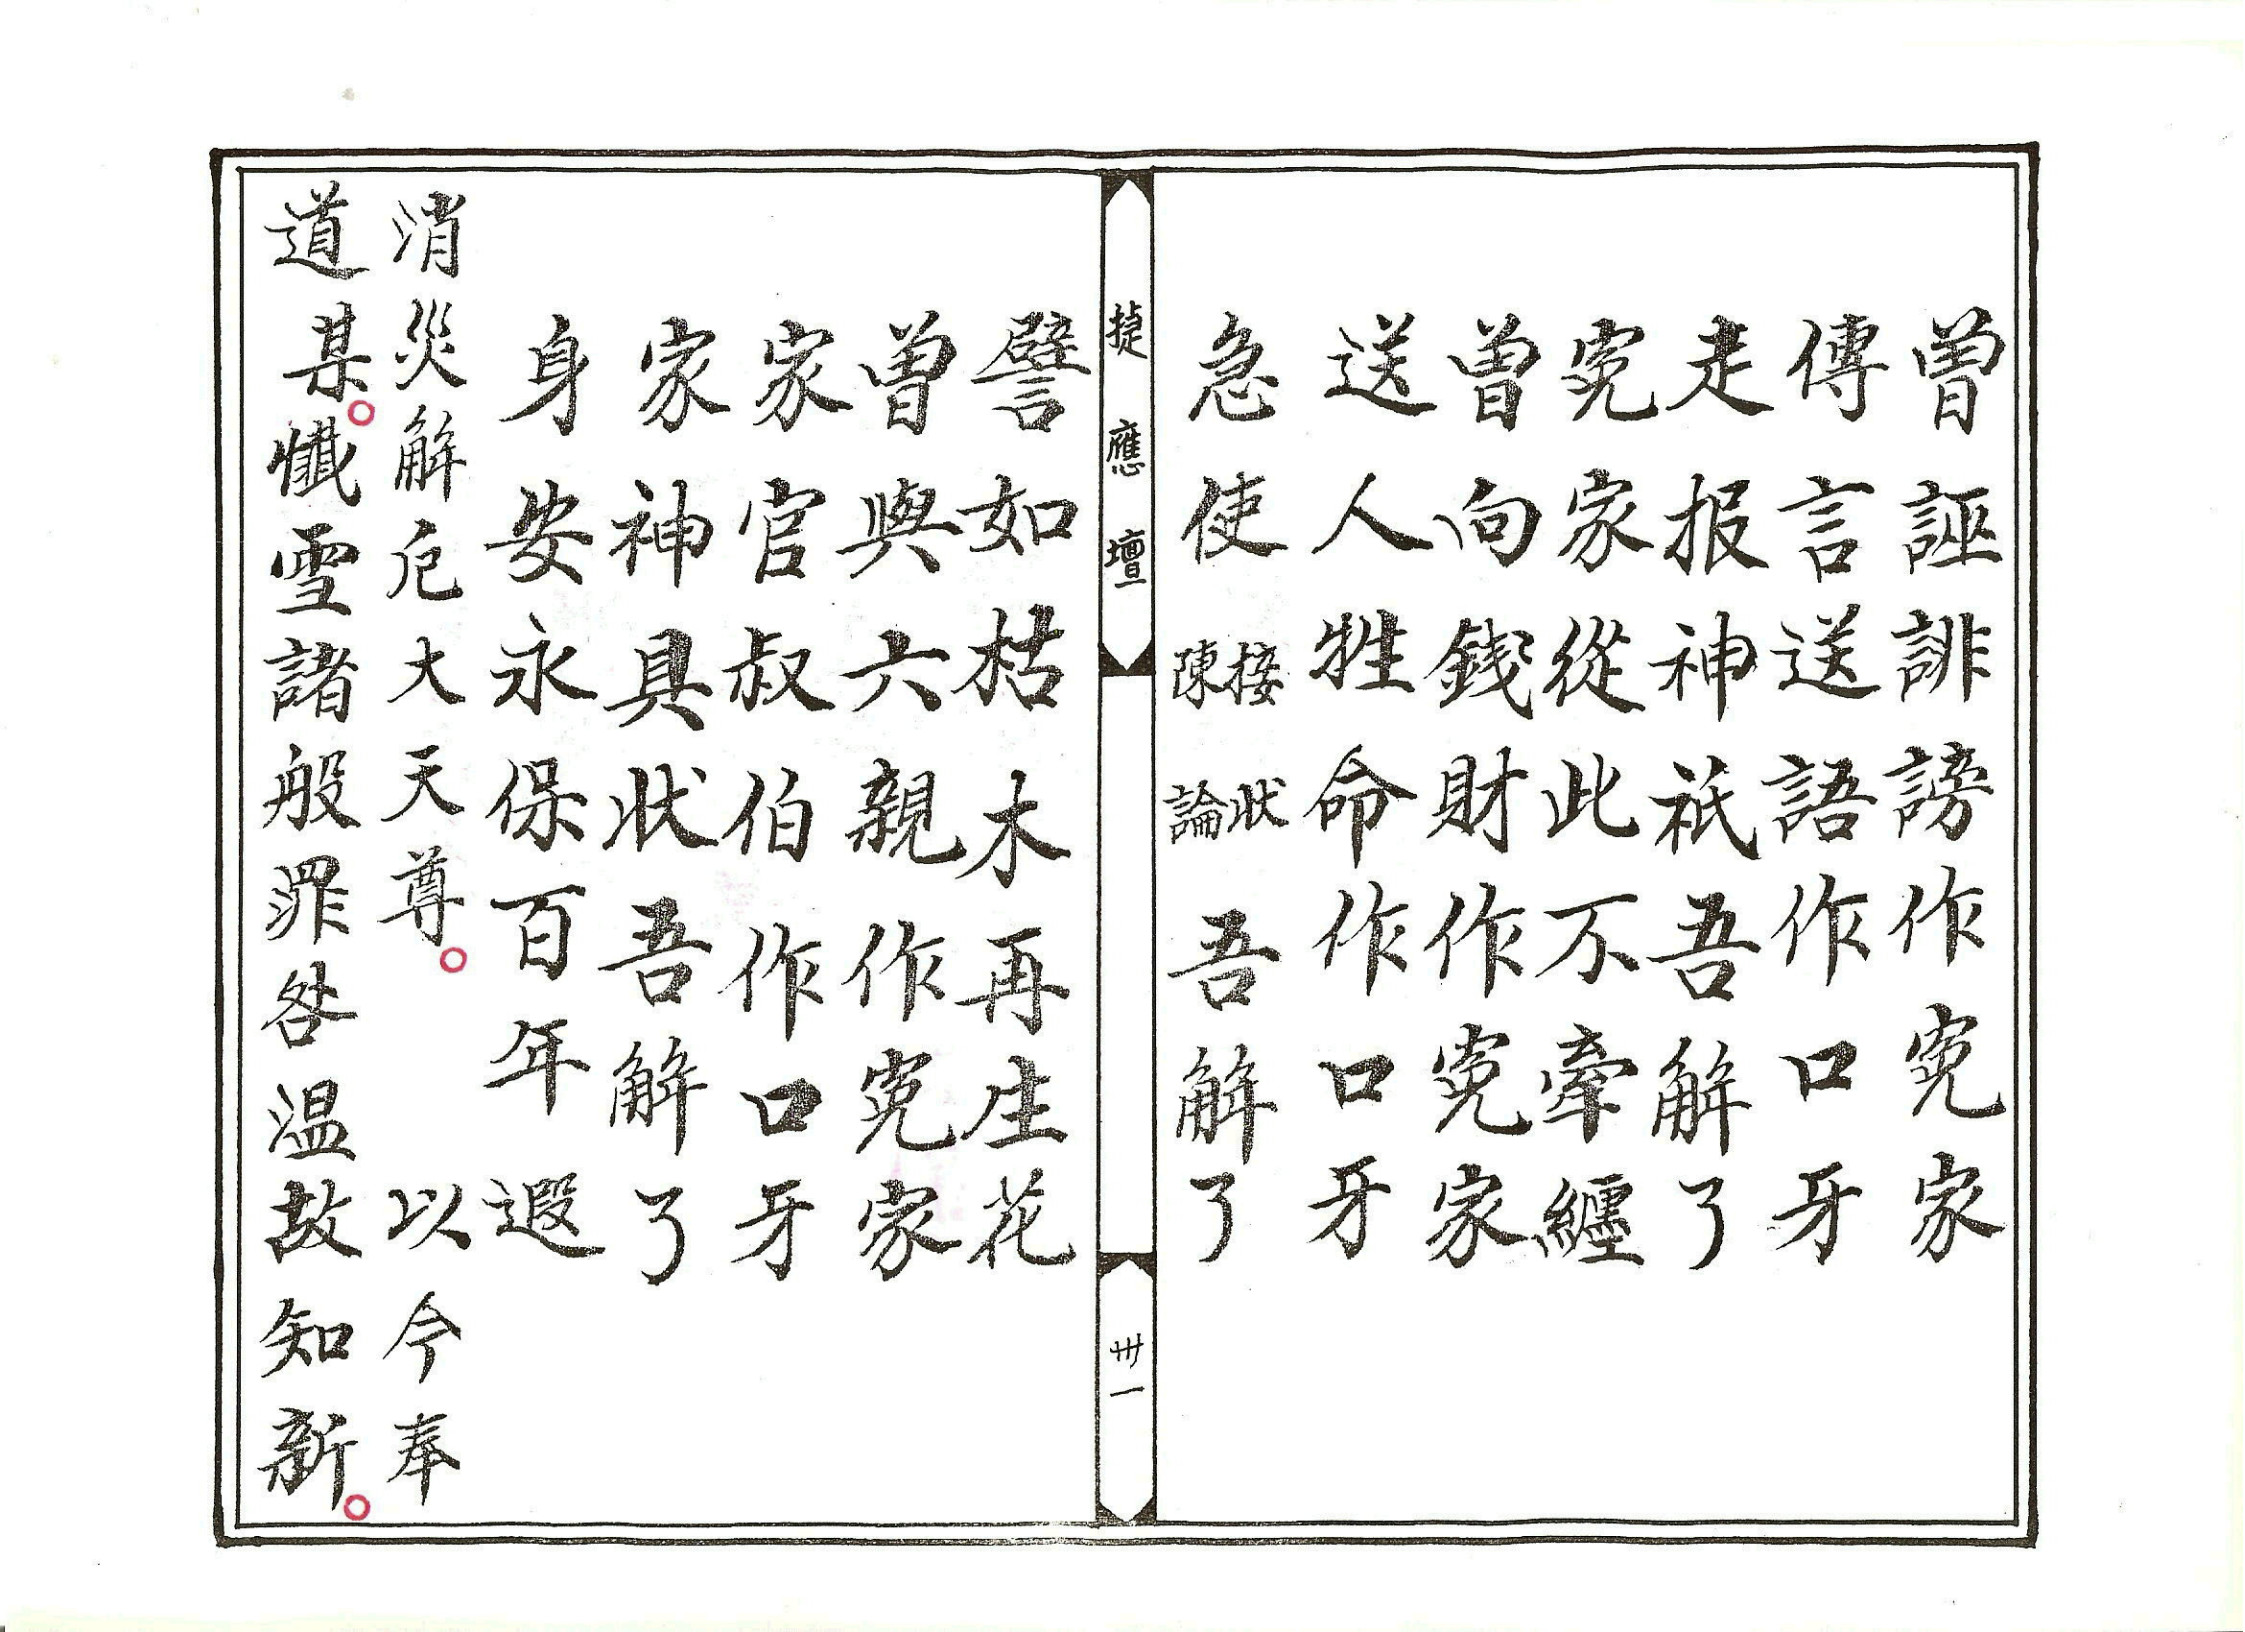 曾誣誹謗作寃家
傳言送語作口牙
走报神祇吾解了
寃家從此不牽纏
曾向錢財作寃家
送人牲命作口牙
急使接状陳論吾解了
捷應壇
卅一
譬如枯木再生花
曾與六親作寃家
家官叔伯作口牙
家神具状吾解了
身安永保百年遐
消災解厄大天尊。以今奉
道某。懺雪諸般罪咎温故知新。